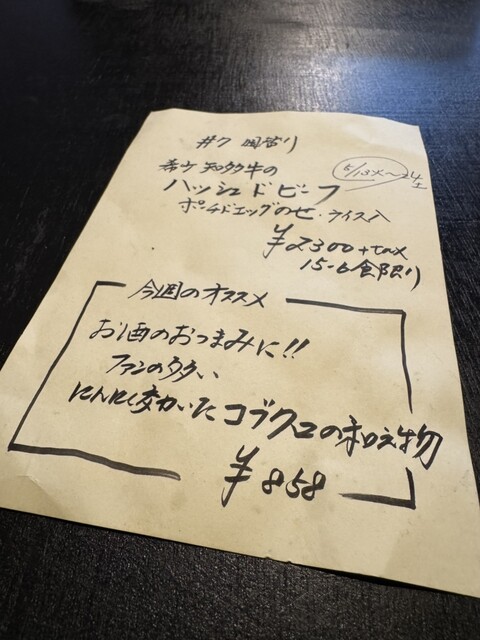 #7
5/13㊋〜24㊏
知多牛の
ハッシュドビーフ
ポーチドエッグのせ・ライス入
¥2300+tax
15-6食限り
今週のオススメ
お酒のおつまみに!!
ファンの多い
にんにく効いた コブクロの和え物
¥858